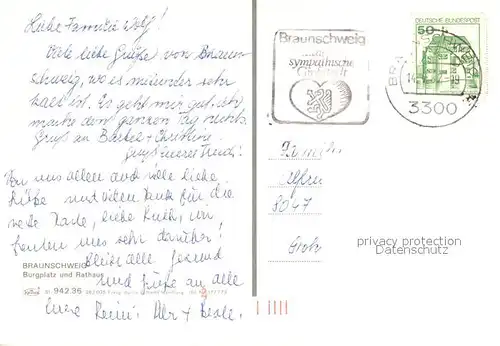 Liebe Familie Wolf!
Viele liebe Grüße von Braun-
schweig, wo es mitunter sehr
kalt ist. Es geht mir gut, ich
mache den ganzen Tag nichts.
Gruß an Bärbel + Christine
Von uns allen auch viele liebe
Grüße und vielen Dank für die
nette Karte, liebe Ruth, wir
freuten uns sehr darüber!
Bleibt alle gesund
und Grüße an alle
Eure
BRAUNSCHWEIG
Burgplatz und Rathaus
942 36
Braunschweig
sympathische
DEUTSCHE BUNDESPOST
50
3300
Familie
8047
privacy protection
Datenschutz